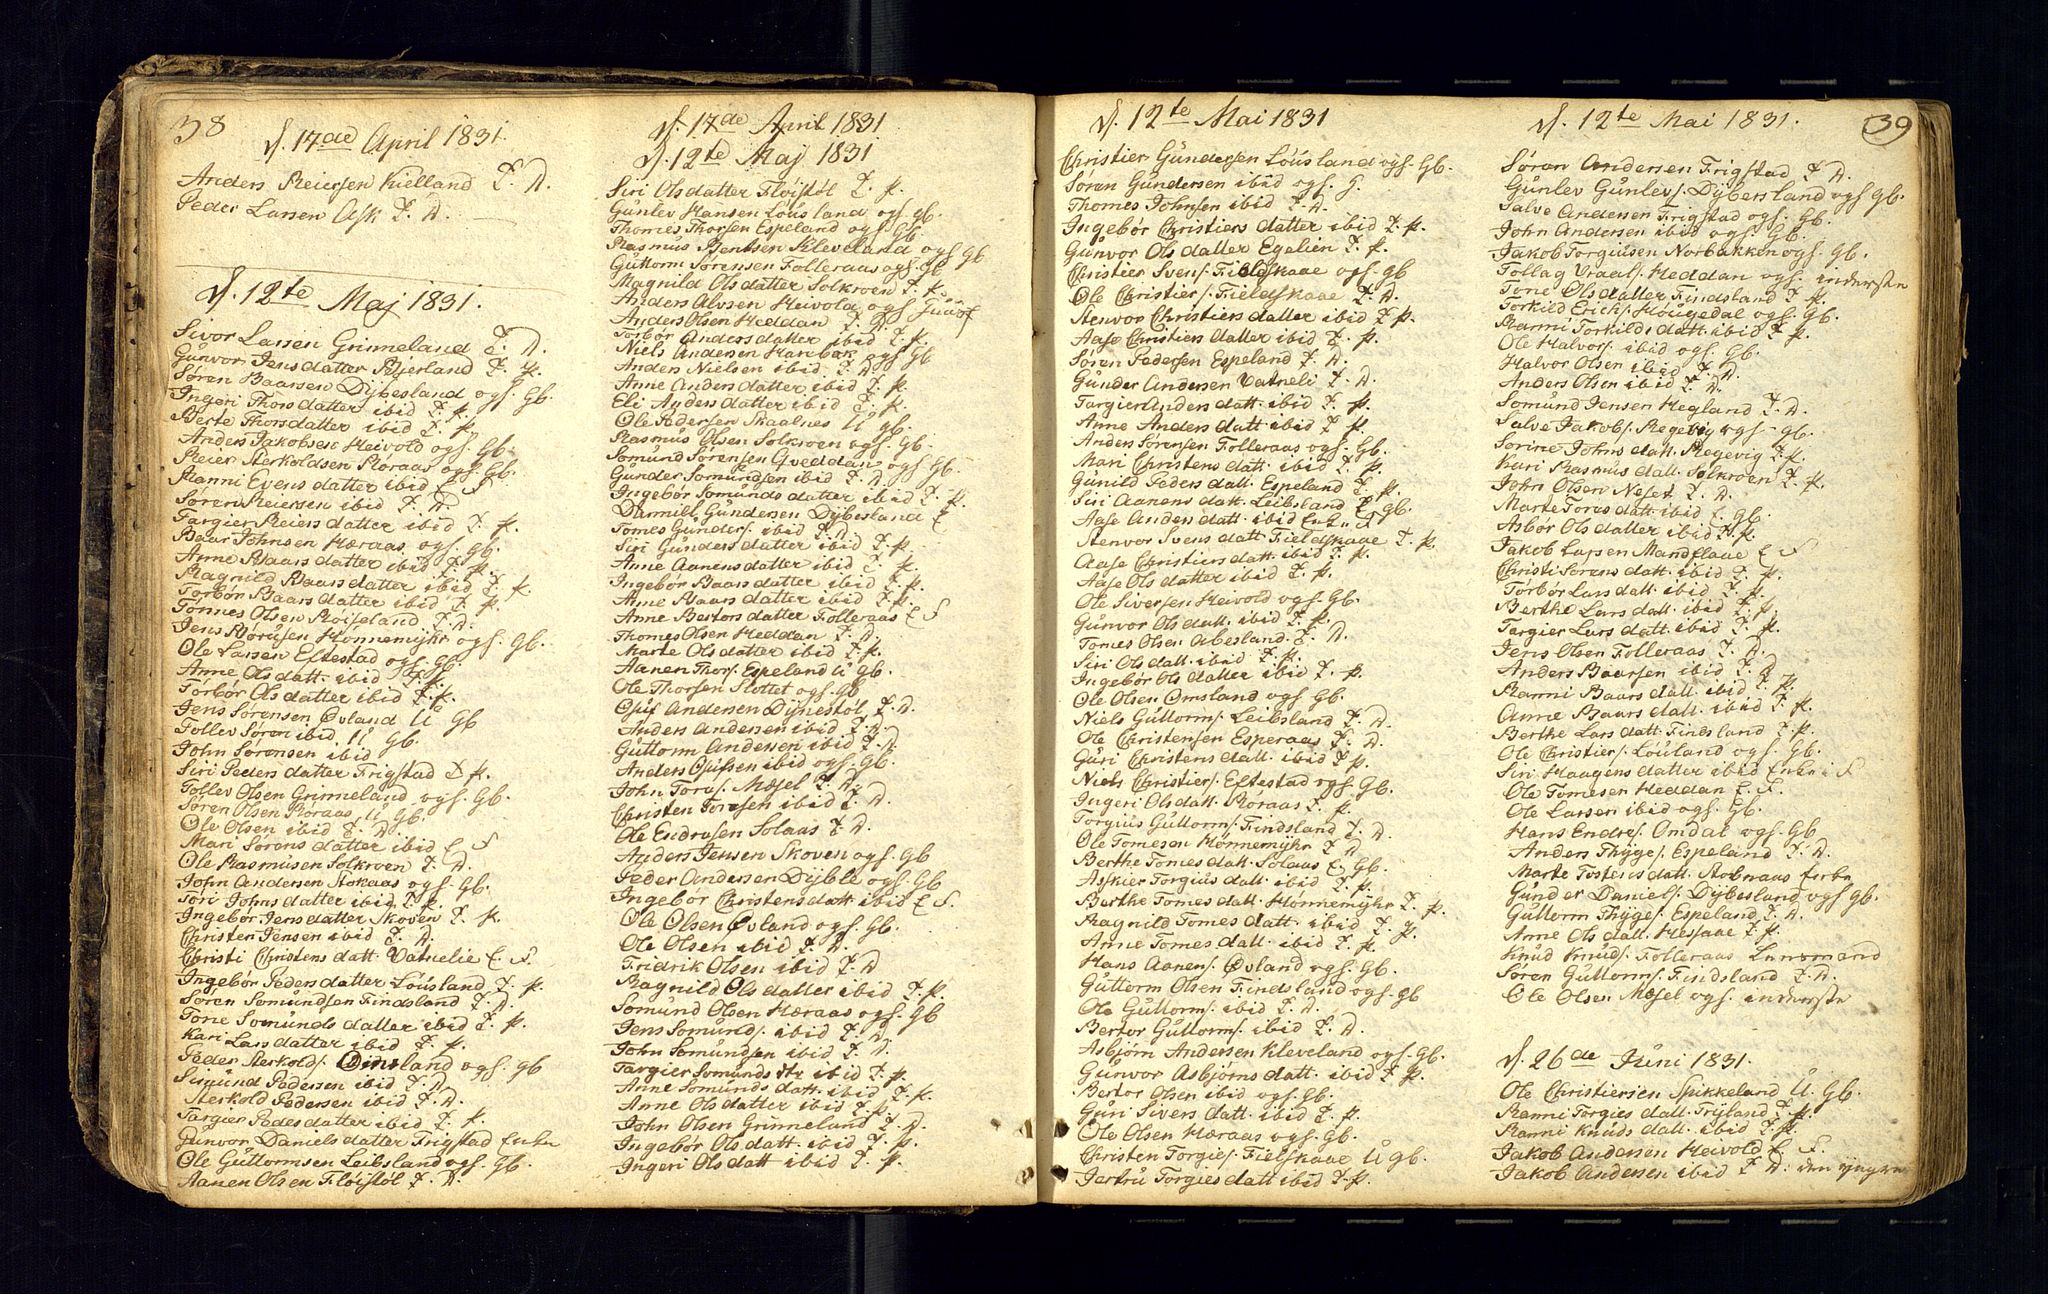 38
d. 17de April 1831
Anders Reiersen Kielland T. D.
Peder Larsen Ask T. D.
d. 12te Maj 1831.
Sivor Larsen Grimeland T. D.
Gunvor Jens datter Bierland T. P.
Søren Baarsen Dybesland ogs. Gb.
Ingeri Thors datter ibid T. P.
Berte Thorsdatter ibid T. P.
Anders Jakobsen Heivold ogs. Gb.
Reier Sterkoldsen Røraas ogs. Gb.
Ranni Evens datter ibid E S
Søren Reiersen ibid T. D.
Targier Reiers datter ibid T. P.
Baar Johnsen Hæraas ogs. Gb.
Anne Baars datter ibid T. P.
Ragnild Baars datter ibid T. P.
Torbør Baars datter ibid T. P.
Tønnes Olsen Røiseland T. D.
Jens Børusen Hønnemyhr ogs. Gb.
Ole Larsen Eftestad ogs. Gb.
Anne Ols datt. ibid T. P.
Torbør Ols datter ibid T. P.
Jens Sørensen Øvland U Gb
Tollev Søren ibid U Gb.
John Sørensen ibid
Siri Peders datter Frigstad T P.
Tollev Olsen Grimeland ogs. Gb.
Søren Olsen Røraas U Gb.
Ole Olsen ibid T. D.
Mari Sørens datter ibid E S
Ole Rasmusen Solkroen T. D.
John Andersen Stokaas ogs. Gb.
Siri Johns datter ibid T. P.
Ingebør Jens datter Skoven T. P.
Christen Jensen ibid T. D.
Christi Christens datt. Vatnelie E. S.
Ingebør Peders datter Lousland T. P.
Søren Somundsen Findsland T. D.
Tone Somunds datter ibid T. P.
Kari Lars datter ibid T. P.
Peder Sterkolds. Omsland ogs. gb
Simund Pedersen ibid T. D
Sterkold Pedersen ibid T. D.
Targier Peders datter ibid T. P.
Gunvor Daniels datter Frigstad Enke
Ole Guttormsen Leibsland ogs. Gb.
Aanen Olsen Fløistøl T. D.
d. 17de April 1831
d. 12te Maj 1831
Siri Ols datter Fløistøl T. P.
Gunlev Hansen Lousland ogs. gb.
Thomes Thorsen Espeland ogs. Gb.
Rasmus Bentsen Kleveland ogs Gb
Guttorm Sørensen Folleraas ogs. Gb
Magnild Ols datter Solkroen T. P.
Anders Alvsen Heivold ogs
Anders Olsen Heddan T. D.
Torbør Anders datter ibid T. P.
Niels Andersen Hanbak ogs Gb
Anders Nielsen ibid T. D
Anne Anders datter ibid T. P.
Eli Anders datter ibid T. P.
Ole Pedersen Skaalnes U gb.
Rasmus Olsen Solkroen ogs. Gb.
Somund Sørensen Qveddan ogs Gb.
Gunder Somundsen ibid T. D.
Ingebør Somunds datter ibid T. P.
Daniel Gundersen Dybesland E
Tomes Gunders. ibid T. D.
Siri Gunders datter ibid T. P.
Anne Aanens datter ibid T. P.
Ingebør Baars datter ibid T. P.
Anne Baars datter ibid T. P.
Anne Bertors datter Folleraas E S
Thomes Olsen Heddan T. D.
Marte Ols datter ibid T. P.
Aanen Thors. Espeland U Gb.
Ole Thorsen Slottet ogs. Gb
Ojuf Andersen Dynestøl T. D.
Anders Andersen ibid T. D.
Guttorm Andersen ibid T. D
Anders Ojufsen ibid T. D.
John Tores. Mosel T. D.
Christen Toresen ibid T. D.
Ole Endresen Solaas T. D.
Anders Jensen Skoven ogs. Gb
Peder Andersen Dyble ogs. Gb
Ingebør Christens datt ibid E S.
Ole Olsen Øvland ogs. Gb.
Ole Olsen ibid T. D.
Fridrik Olsen ibid T. D
Ragnild Ols datter ibid T. P.
Somund Olsen Hæraas ogs. Gb
Jens Somunds. ibid T. D
John Somundsen ibid T. D.
Targier Somunds dtr ibid T. P.
Anne Somunds datt. ibid T. P.
Anne Ols datter ibid T. P.
John Olsen Grimeland T. D.
Ingebør Ols datt. ibid T. P.
Ingeri Ols datt ibid T. P.
d. 12te Mai 1831
Christier Gundersen Lousland ogs. Gb.
Søren Gundersen ibid ogs. G.
Thomes Johnsen ibid T. D.
Ingebør Christiers datter ibid T. P.
Gunvor Ols datter Egelien T. P.
Christier Svens. Fieldskaae ogs. gb
Ole Christiers. Fieldskaae T. D.
Stenvor Christiers datter ibid T. P.
Aase Christiers datter ibid T. P.
Søren Pedersen Espeland T. D.
Gunder Andersen Vatneli T. D.
Targier Anders datt. ibid T. P.
Anne Anders datt. ibid T. P.
Anders Sørensen Folleraas ogs. Gb.
Mari Christens datt. ibid T. P.
Gunild Peders datt. Espeland T. P.
Siri Aanens datt. Leibsland E Gb.
Aase Anders datt. ibid Enk. S
Stenvor Svens datt. Fieldskaae T. P.
Aase Christiers datt. ibid T. P.
Aase Ols datter ibid T. P.
Ole Siversen Heivold ogs. Gb.
Gunvor Ols datt. ibid T. P.
Tomes Olsen Abesland T. D.
Siri Ols datt. ibid T. P.
Ingebør Ols datter ibid T. P.
Ole Olsen Omsland ogs Gb.
Niels Guttorms. Leibsland T. D.
Ole Christensen Esperaas T. D.
Guri Christens datt. ibid T. P.
Niels Christiers. Eftestad ogs Gb.
Ingeri Ols datt. Røraas T. P.
Torgius Guttorms. Findsland T. D.
Ole Tomesen Hønnemyhr T. D
Berthe Tomes datt. Solaas E. Gb.
Askier Torgius datt. ibid T. P.
Berthe Tomes datt. Hønnemyhr T. P.
Ragnild Tomes datt. ibid T. P.
Anne Tomes datt. ibid T. P.
Hans Aanens. Øvland ogs. Gb.
Guttorm Olsen Findsland ogs Gb
Ole Guttorms. ibid T. D.
Bertor Guttorms. ibid T. D.
Asbjørn Andersen Kleveland ogs. Gb.
Gunvor Asbjørns datt. ibid T. P.
Bertor Olsen ibid ogs. Gb.
Guri Sivers datt. ibid T. P.
Ole Olsen Hæraas ogs. Gb.
Christen Torgies. Fielskaae U gb.
Jertru Torgies datt ibid T. P.
39
d. 12te Mai 1831.
Søren Andersen Frigstad T. D.
Gunlev Gunlevs. Dybesland ogs Gb.
Salve Andersen Frigstad ogs. Gb.
John Andersen ibid ogs. Gb.
Jakob Torgiusen Norbakken ogs. Gb.
Tollag Vraals. Heddan ogs. inderste
Tone Ols datter Findsland T. P.
Torkild Erichs. Høugedal ogs. Gb.
Ranni Torkilds datt. ibid T. P.
Ole Halvors. ibid ogs. Gb.
Halvor Olsen ibid T. D.
Anders Olsen ibid T. D.
Somund Jensen Hegland T. D.
Salve Jakobs. Regevig ogs. Gb.
Sorine Johns datt. Regevig T. P.
Kari Rasmus datt. Solkroen T. P.
John Olsen Neset T. D.
Marte Tores datt. ibid E. Gb.
Asbør Ols datter ibid T. P.
Jakob Larsen Mandflaae E S
Christi Sørens datt. ibid T. P.
Torbør Lars datt. ibid T. P.
Berthe Lars datt. ibid T. P.
Targier Lars datt. ibid T. P.
Jens Olsen Folleraas T. D.
Anders Baarsen ibid T. D
Ranni Baars datt. ibid T. P.
Anne Baars datt. ibid T. P.
Berthe Lars datt. Findsland T. P.
Ole Christiers. Louland ogs. Gb.
Siri Haagens datter ibid Enke i S
Ole Tomesen Heddan E. S.
Ole Larsen ibid ogs. Gb.
Hans Endres. Omdal ogs. Gb
Anders Thyges. Espeland T. D.
Marte Tostens datt. Stobraas
Gunder Daniels. Dybesland ogs gb.
Guttorm Thyges. Espeland T. D.
Anne Ols datt. Hessaae T. P.
Knud Knuds. Folleraas Lænsmand
Søren Guttorms. Findsland T. D.
Ole Olsen Mosel ogs. inderste
d. 26de Juni 1831.
Ole Christiersen Spikkeland U. Gb.
Ranni Torgies datt. Tryland T. P.
Ranni Knuds datt. ibid T. P.
Jakob Andersen Heivold E S.
Jakob Andersen ibid T D. den yngre